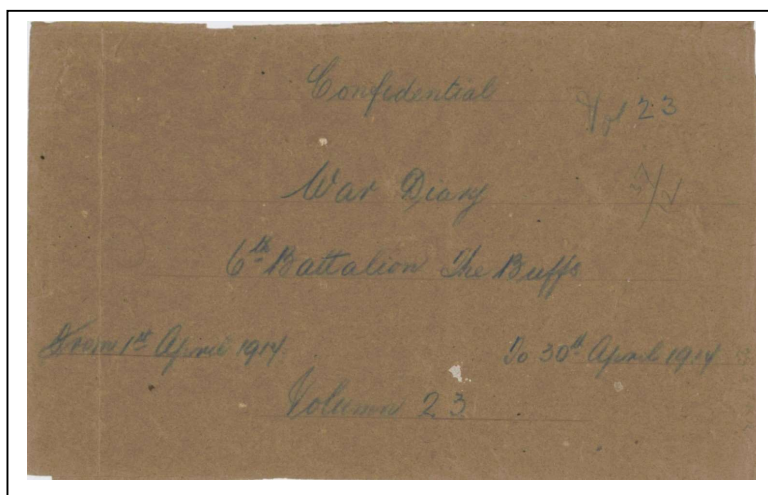 Confidential
Vol 23
War Diary
6th Battalion The Buffs
From 1st April 1917. To 30th April 1917
Volumn 23